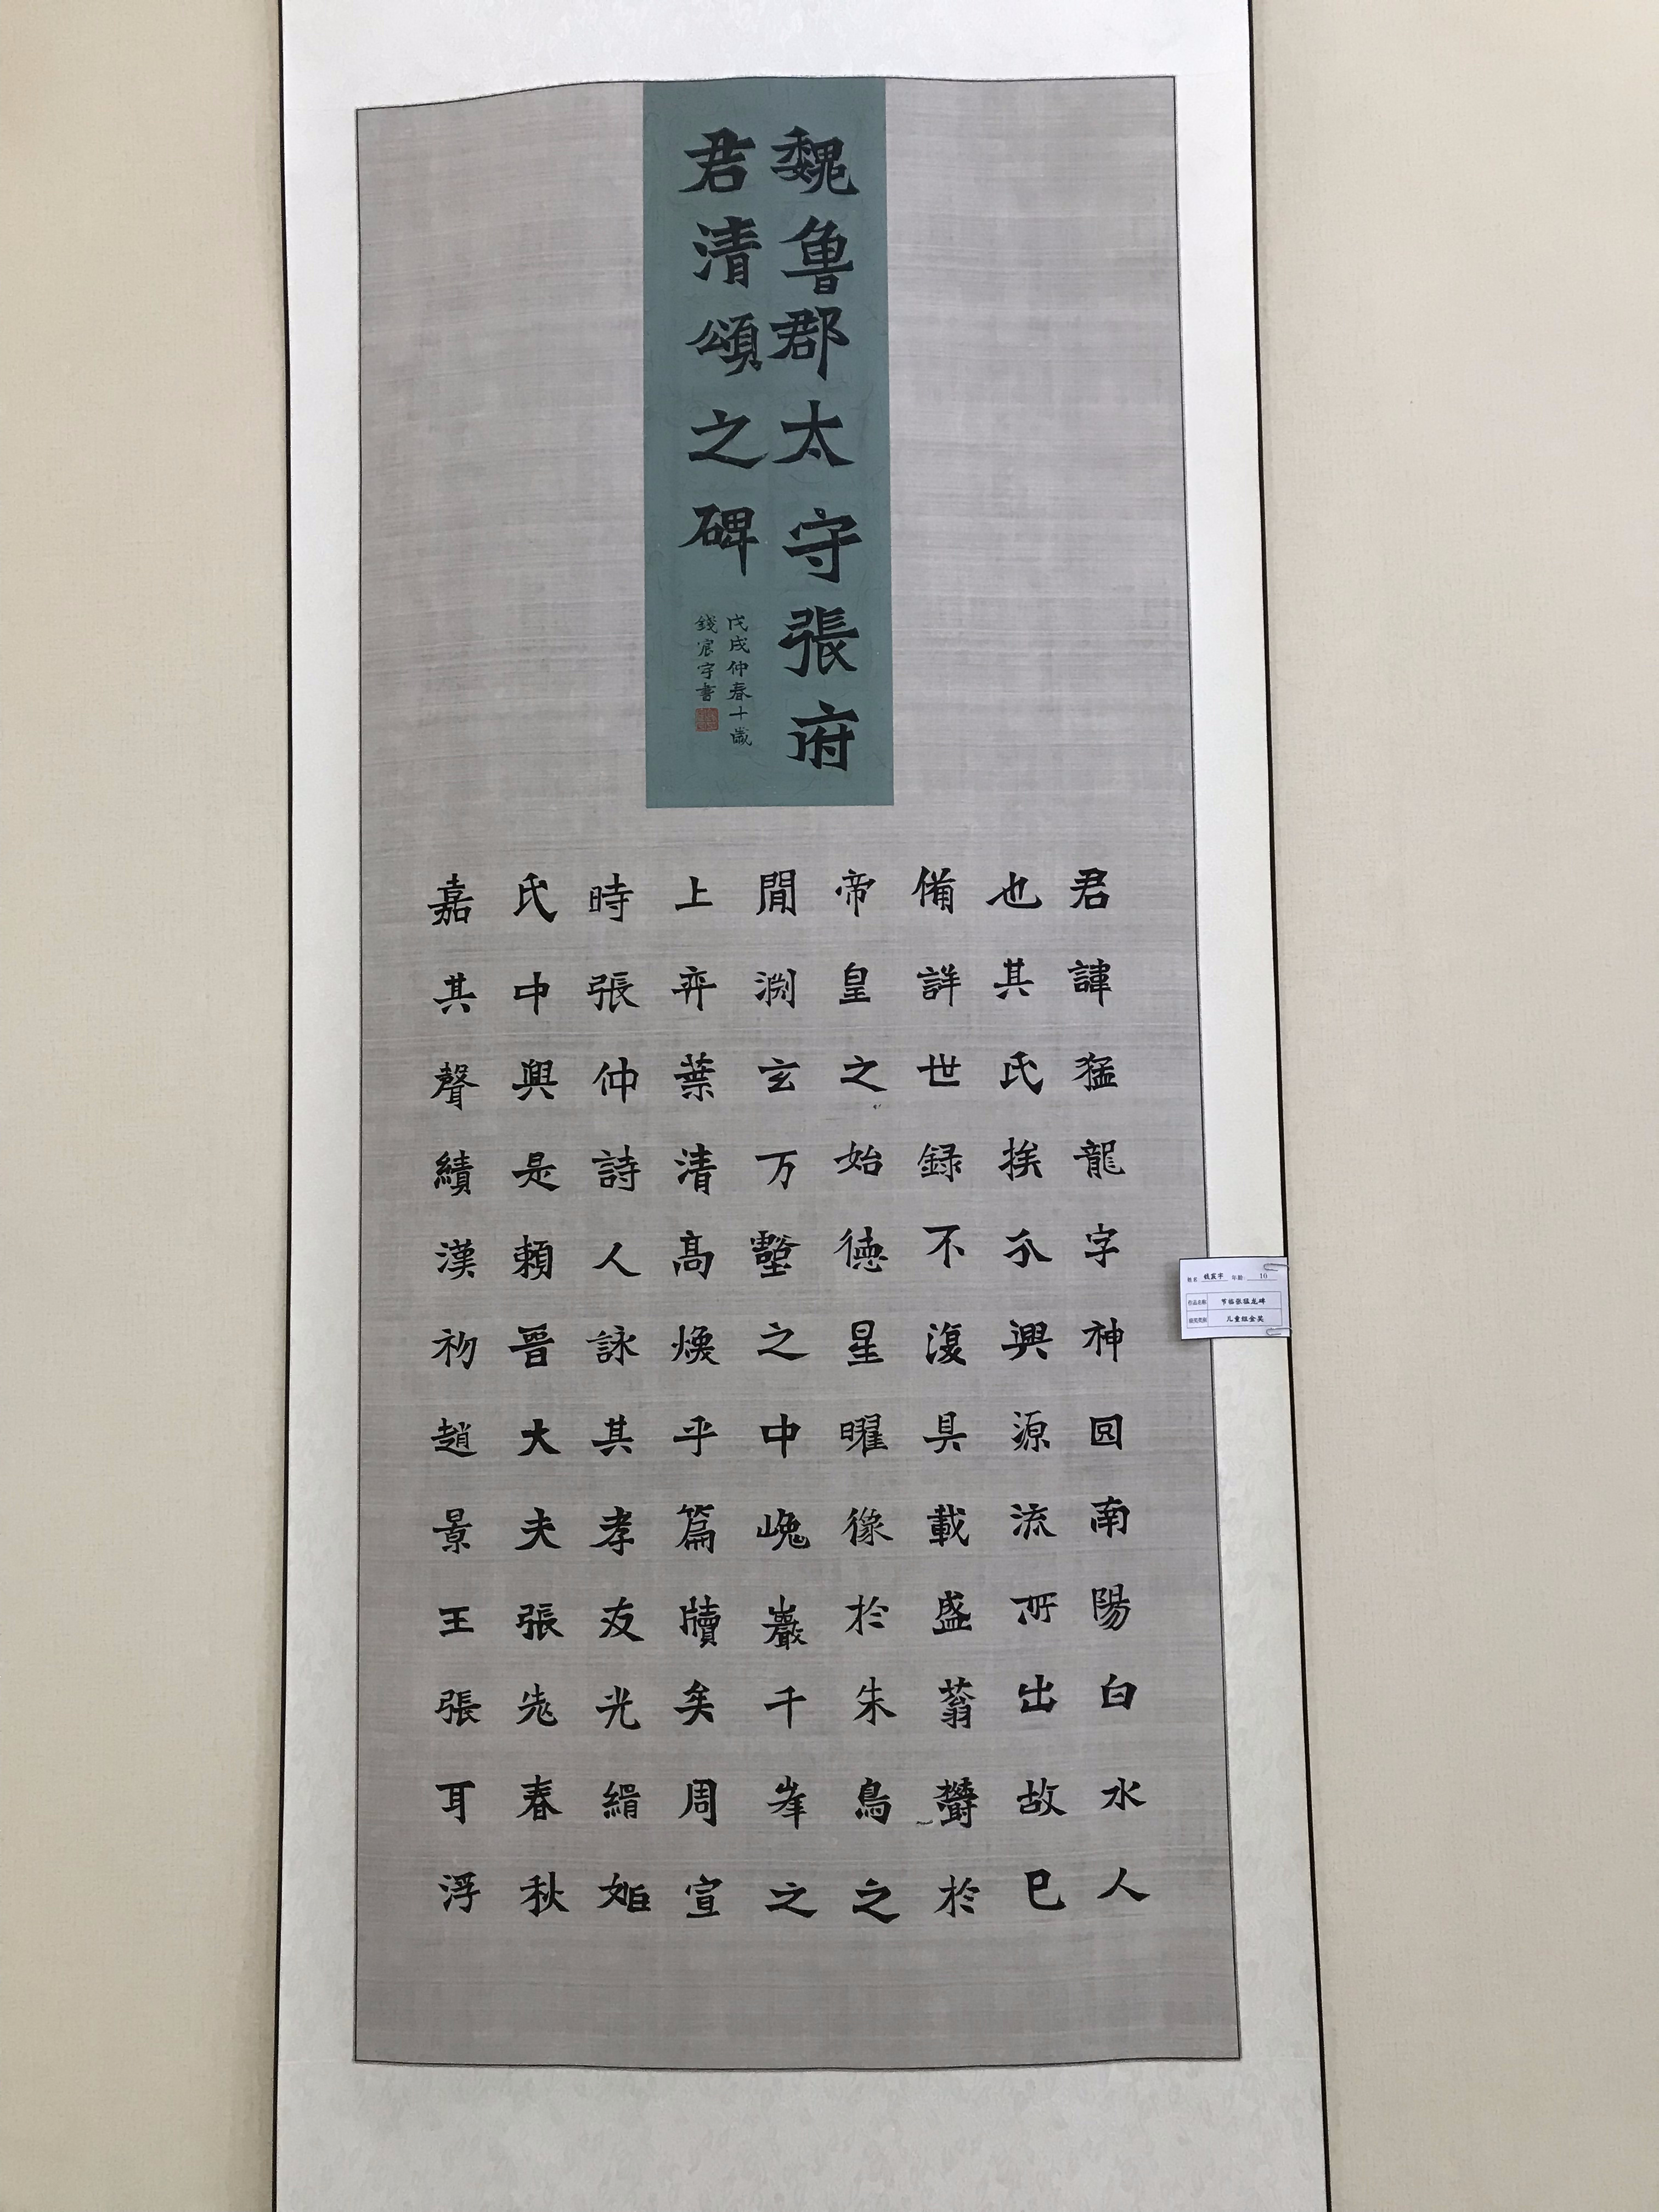 魏魯郡太守張府
君清頌之碑
戊戌仲春十歲
錢宸宇書
君諱猛龍字神囧南陽白水人
也其氏族分興源流所出故已
備詳世録不復具載盛蓊欝於
帝皇之始德星曜像於朱鳥之
間渊玄万壑之中巉巖千峯之
上弈葉清高煥乎篇牘矣周宣
時張仲詩人詠其孝友光緝姬
氏中興是賴晉大夫張老春秋
嘉其聲績漢初趙景王張耳浮
姓名 钱宸宇 年龄 10
作品名称 节临张猛龙碑
儿童组金奖